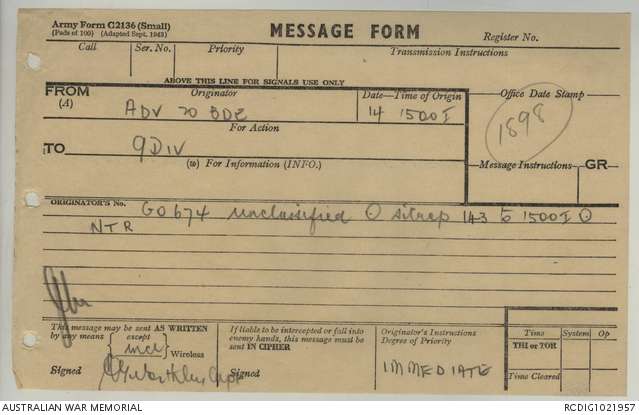 Army Form C2136 (Small)
(Pads of 100) (Adapted Sept. 1943)
MESSAGE FORM
Register No.
Call
Ser. No.
Priority
Transmission Instructions
ABOVE THIS LINE FOR SIGNALS USE ONLY
FROM
(A)
Originator
ADV 20 BDE
Date—Time of Origin
14 1500 I
Office Date Stamp
1898
For Action
TO
9 DIV
(W) For Information (INFO.)
Message Instructions
GR
ORIGINATOR'S No.
GO674 unclassified O sitrep 143 to 1500 I O
NTR
This message may be sent AS WRITTEN
by any means
except
Wireless
Signed
If liable to be intercepted or fall into
enemy hands, this message must be
sent IN CIPHER
Signed
Originator's Instructions
Degree of Priority
IMMEDIATE
Time
System
Op
THI or TOR
Time Cleared
AUSTRALIAN WAR MEMORIAL
RCDIG1021957